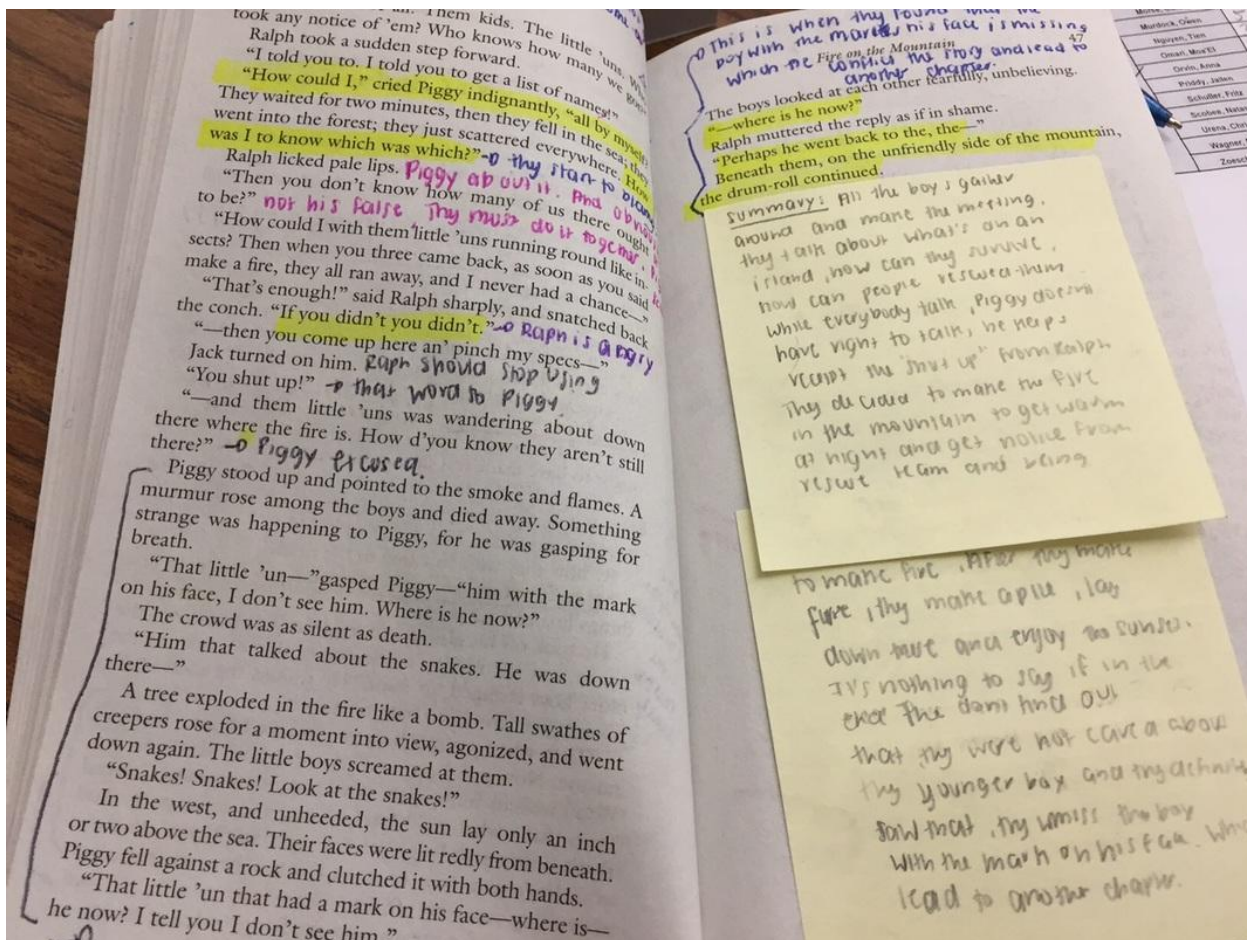 Them kids. The little 'uns.
took any notice of 'em? Who knows how many we
Ralph took a sudden step forward.
"I told you to. I told you to get a list of names!"
"How could I," cried Piggy indignantly, "all by myself?
They waited for two minutes, then they fell in the sea; they
went into the forest; they just scattered everywhere. How
was I to know which was which?" thy start to blame
Ralph licked pale lips. Piggy about it. And
"Then you don't know how many of us there ought
to be?" not his false thy must do it together.
"How could I with them little 'uns running round like in-
sects? Then when you three came back, as soon as you said
make a fire, they all ran away, and I never had a chance—"
"That's enough!" said Ralph sharply, and snatched back
the conch. "If you didn't you didn't." Raph is angry
"—then you come up here an' pinch my specs—"
Jack turned on him. Raph should stop using
"You shut up!" that word to Piggy
"—and them little 'uns was wandering about down
there where the fire is. How d'you know they aren't still
there?" Piggy excused.
Piggy stood up and pointed to the smoke and flames. A
murmur rose among the boys and died away. Something
strange was happening to Piggy, for he was gasping for
breath.
"That little 'un—"gasped Piggy—"him with the mark
on his face, I don't see him. Where is he now?"
The crowd was as silent as death.
"Him that talked about the snakes. He was down
there—"
A tree exploded in the fire like a bomb. Tall swathes of
creepers rose for a moment into view, agonized, and went
down again. The little boys screamed at them.
"Snakes! Snakes! Look at the snakes!"
In the west, and unheeded, the sun lay only an inch
or two above the sea. Their faces were lit redly from beneath.
Piggy fell against a rock and clutched it with both hands.
"That little 'un that had a mark on his face—where is—
he now? I tell you I don't see him."
This is when thy found that the
boy with the mark his face is missing
47
Fire on the Mountain
which the conflict the story and lead to
another chapter.
The boys looked at each other fearfully, unbelieving.
"—where is he now?"
Ralph muttered the reply as if in shame.
"Perhaps he went back to the, the—"
Beneath them, on the unfriendly side of the mountain,
the drum-roll continued.
summary: All the boys gather
around and make the meeting.
thy talk about what's on an
island, how can thy survive,
how can people rescue them
while everybody talk, Piggy doesn't
have right to talk, he keeps
the "shut up" from Ralph
Thy decided to make the fire
in the mountain to get warm
at night and get notice from
rescue team and being
to make fire. After thy make
fire, thy make a pile, lay
down there and enjoy the sunset.
It's nothing to say if in the
end the don't find out
that thy were not care about
thy younger boy and thy
saw that, thy miss the boy
with the mark on his face.
lead to another chapter.
Murdock, Owen
Nguyen, Tien
Orvin, Anna
Priddy, Jalen
Schuller, Fritz
Scobee,
Urena,
Wagner,